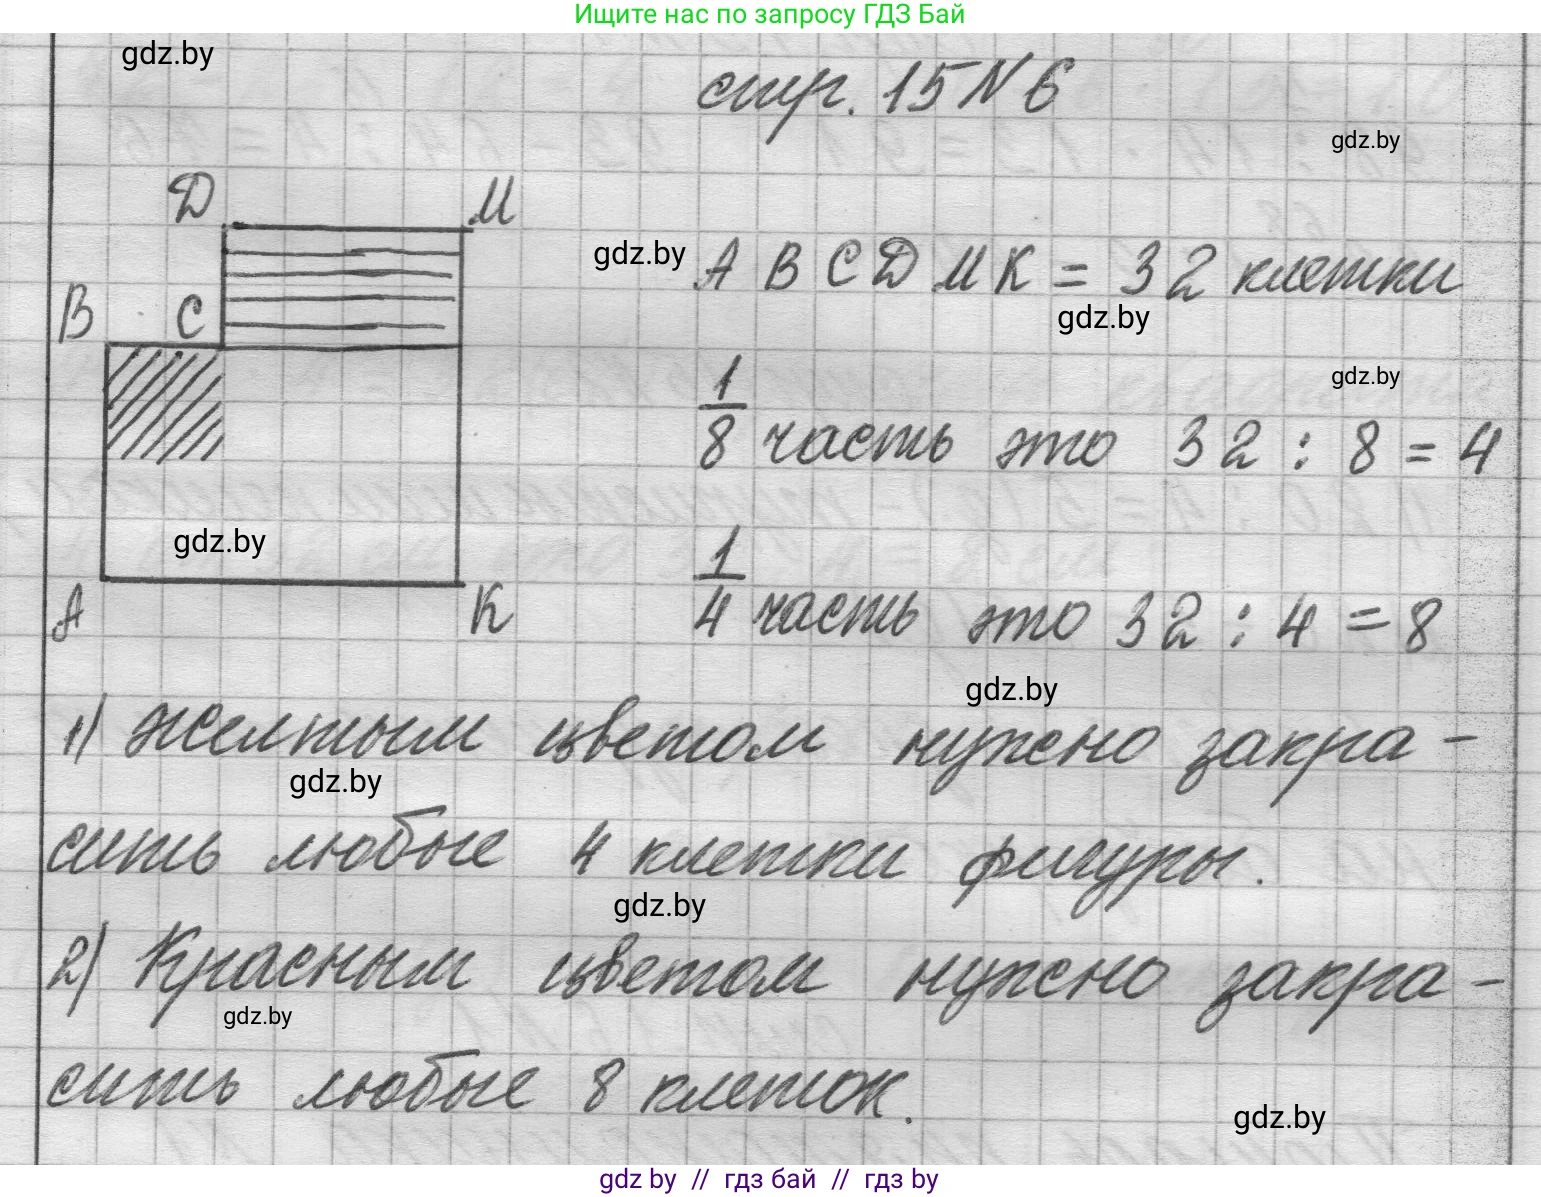 Ищите нас по запросу ГДЗ Бай
gdz.by
стр. 15 N 6
gdz.by
Д М
gdz.by
А В С Д М К = 32 клетки
В С
gdz.by
gdz.by
1/8 часть это 32 : 8 = 4
gdz.by
1/4 часть это 32 : 4 = 8
А К
gdz.by
1) Желтым цветом нужно закра-
gdz.by
сить любые 4 клетки фигуры.
gdz.by
2) Красным цветом нужно закра-
gdz.by
сить любые 8 клеток.
gdz.by
gdz by // гдз бай // гдз by